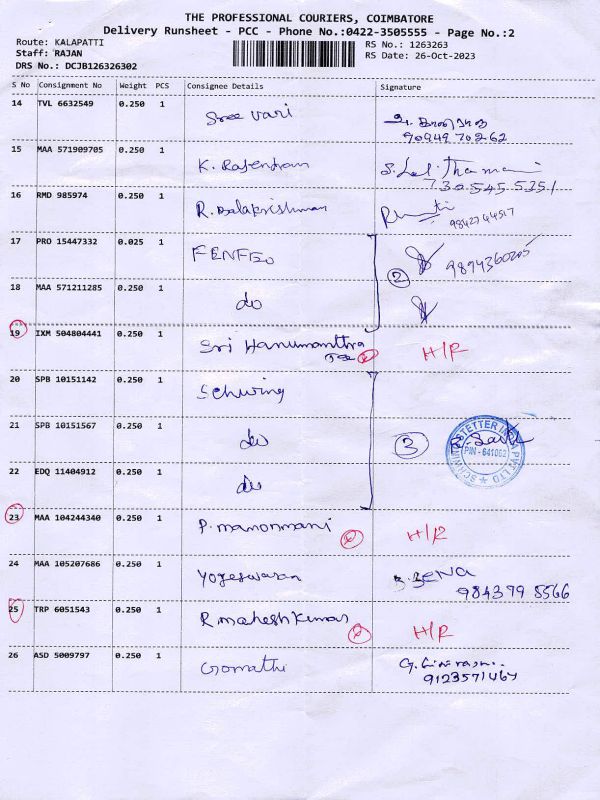 THE PROFESSIONAL COURIERS, COIMBATORE
Delivery Runsheet - PCC - Phone No.:0422-3505555 - Page No.:2
Route: KALAPATTI
Staff: RAJAN
DRS No.: DCJB126326302
RS No.: 1263263
RS Date: 26-Oct-2023
S No Consignment No Weight PCS Consignee Details Signature
14 TVL 6632549 0.250 1 Sree Vari
90949 70262
15 MAA 571909705 0.250 1 K. Rajendran S. Lal
730 545 5351
16 RMD 985974 0.250 1 R. Balakrishnan
9842744517
17 PRO 15447332 0.025 1 FENFEO 2 9894360205
18 MAA 571211285 0.250 1 do
19 IXM 504804441 0.250 1 Sri Hanumanthra H/R
20 SPB 10151142 0.250 1 Schwing
21 SPB 10151567 0.250 1 do 3
PIN - 641062
22 EDQ 11404912 0.250 1 do
23 MAA 104244340 0.250 1 P. manonmani H/R
24 MAA 105207686 0.250 1 Yogeswaran
984399 8566
25 TRP 6051543 0.250 1 R. mahesh Kumar H/R
26 ASD 5009797 0.250 1 Gomathi
9123571467